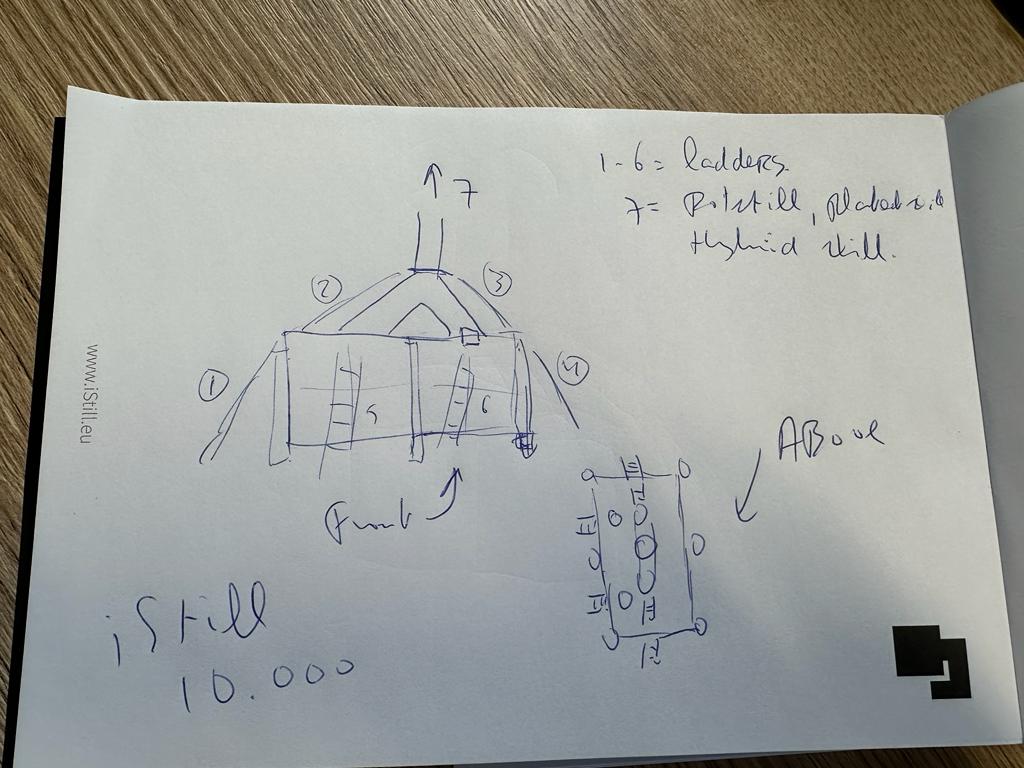 1-6 = ladders.
7 = Potstill, plated still
Hybrid still.
7
2
3
1
4
5
6
Front
ABOVE
iStill
10.000
www.iStill.eu